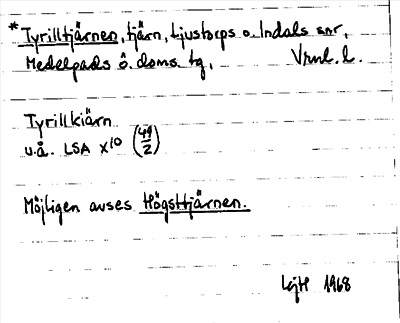 * Tyrilltjärnen, tjärn, Ljustorps o. Indals snr,
Medelpads ö. doms. tg, Vrnl. l.
Tyrillkiärn
u.å. LSA X10 (49/2)
Möjligen avses Högsttjärnen.
1968